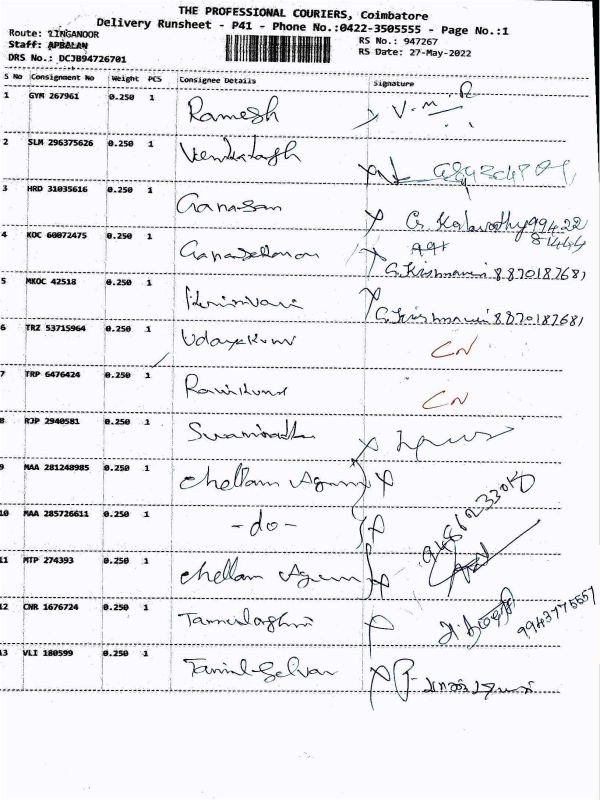 THE PROFESSIONAL COURIERS, Coimbatore
Delivery Runsheet - P41 - Phone No.:0422-3505555 - Page No.:1
Route: LINGANOOR
Staff: APBALAN
DRS No.: DCJB94726701
RS No.: 947267
RS Date: 27-May-2022
S No Consignment No Weight PCS Consignee Details Signature
1 GYM 267961 0.250 1 Ramesh V.M.
2 SLM 296375626 0.250 1
3 HRD 31035616 0.250 1 Ganasan G. Kalavathy 99422
81444
4 KOC 60072475 0.250 1 G.Krishnaveni 8870187681
5 MKOC 42518 0.250 1 G.Krishnaveni 8870187681
6 TRZ 53715964 0.250 1 Udayakumr CN
7 TRP 6476424 0.250 1 Ravikumr CN
8 RJP 2940581 0.250 1
9 MAA 281248985 0.250 1 Chellam Agum
10 MAA 285726611 0.250 1 -do-
11 MTP 274393 0.250 1 Chellam Agum
12 CNR 1676724 0.250 1
13 VLI 180599 0.250 1 Tamil Selvan